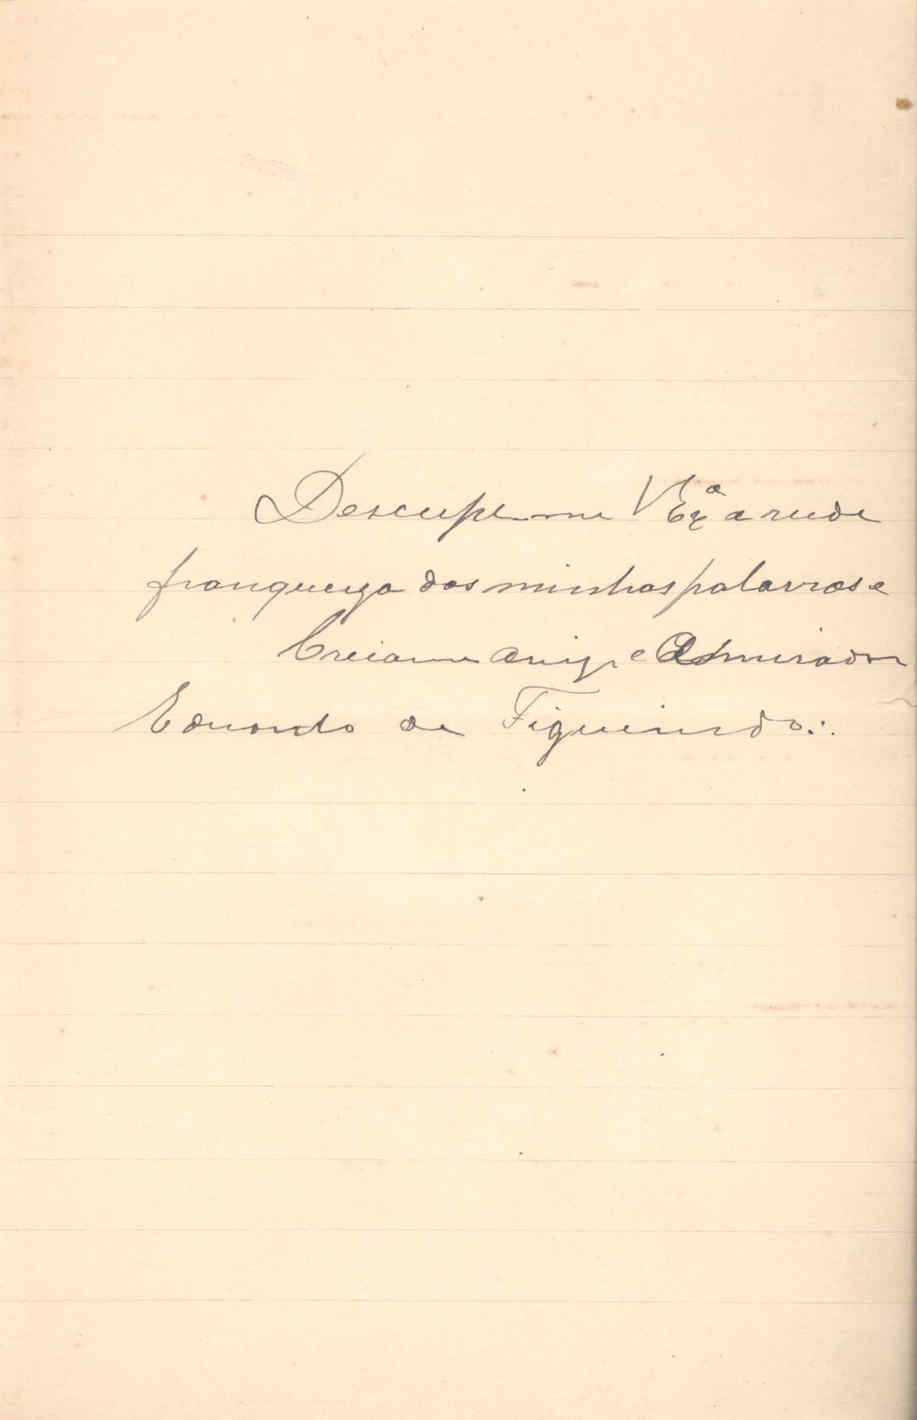 Desculpe-me V Exª a rude
franqueza das minhas palavras e
Creiame amigo e Admirador
Eduardo de Figueiredo.:.